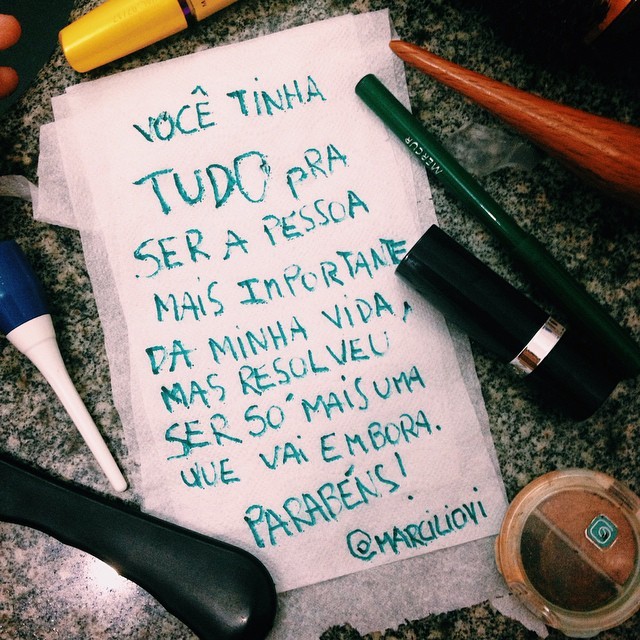 VOCÊ TINHA
TUDO PRA
SER A PESSOA
MAIS IMPORTANTE
DA MINHA VIDA,
MAS RESOLVEU
SER SÓ MAIS UMA
QUE VAI EMBORA.
PARABÉNS!
@MARCILIOVI